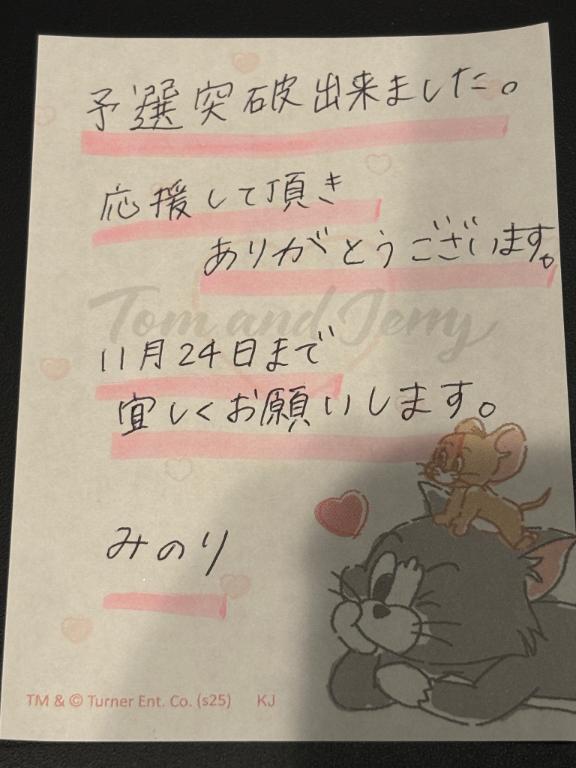 予選突破出来ました。
応援して頂き
ありがとうございます。
Tom and Jerry
11月24日まで
宜しくお願いします。
みのり
TM & © Turner Ent. Co. (s25) KJ